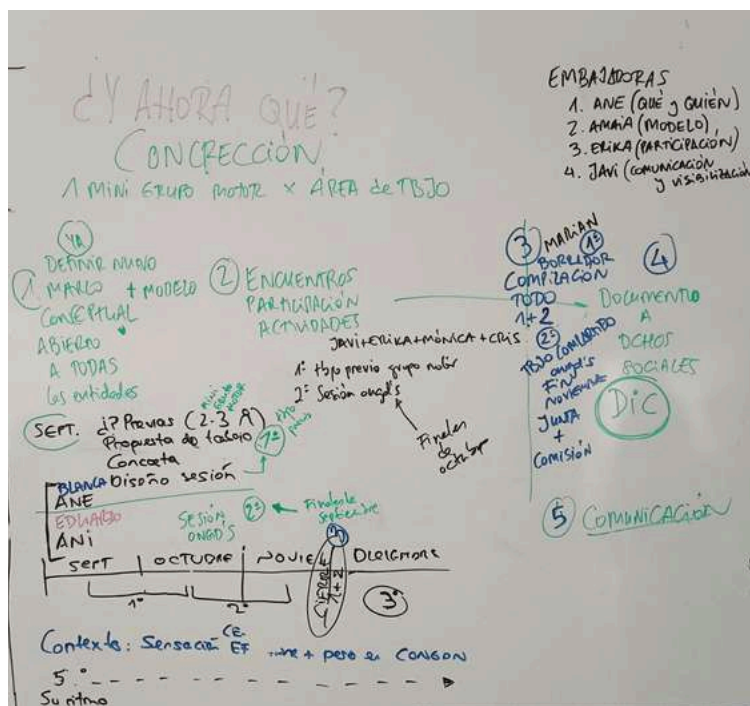 ¿Y AHORA QUÉ?
CONCRECCIÓN
1 MINI GRUPO MOTOR x ÁREA de TBJO
EMBAJADORAS
1. ANE (QUÉ y QUIÉN)
2. AMAIA (MODELO)
3. ERIKA (PARTICIPACIÓN)
4. JAVI (COMUNICACIÓN
y VISIBILIZACIÓN
YA
1. DEFINIR NUEVO
MARCO + MODELO
CONCEPTUAL
ABIERTO
A TODAS
las entidades
2 ENCUENTROS
PARTICIPACIÓN
ACTIVIDADES
JAVI+ERIKA+MÓNICA+CRIS
1º tbjo previo grupo motor
2º Sesión ongd's
Finales
de
octubre
3 MARIAN
1º BORRADOR
COMPILACIÓN
TODO
1+2
2º
TBJO COMPARTIDO
ongd's
FIN
NOVIEMBRE
JUNTA
+
COMISIÓN
4
DOCUMENTO
A
DCHOS
SOCIALES
DIC
5 COMUNICACIÓN
SEPT. ¿? Previas (2-3 h)
mini
grupo
MOTOR
Propuesta de trabajo
Concreta
Diseño sesión
1º tbjo
previo
BLANCA
ANE
EDUARDO
ANI
SESIÓN
ONGD'S
2º
Finales de
septiembre
SEPT OCTUBRE NOVIE DICIEMBRE
CIERRE
1+2
1º 2º 3º
Contexto: Sensación CE
EF + pero en CONGDN
5º
Su ritmo